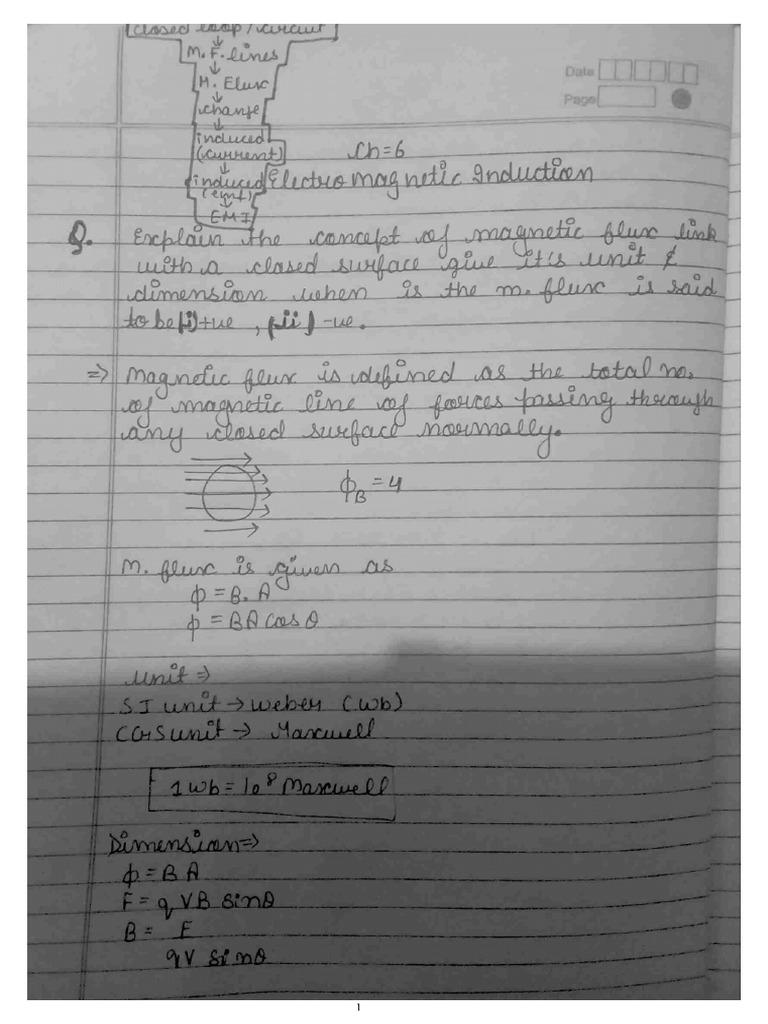 closed loop/circuit
↓
M.F. lines
↓
M. Flux
↓
change
↓
induced
(current)
↓
induced
(emf)
↓
EMI
Date
Page
Ch=6
Electromagnetic Induction
Q. Explain the concept of magnetic flux link
with a closed surface give it's unit &
dimension when is the m. flux is said
to be (i) +ve , (ii) -ve.
⇒ Magnetic flux is defined as the total no.
of magnetic line of forces passing through
any closed surface normally.
ϕB = 4
M. flux is given as
ϕ = B. A
ϕ = BA cos θ
Unit ⇒
SI unit → weber (wb)
CGS unit → Maxwell
1 wb = 10⁸ Maxwell
Dimension ⇒
ϕ = B A
F = q VB sinθ
B = F
qV sinθ
1